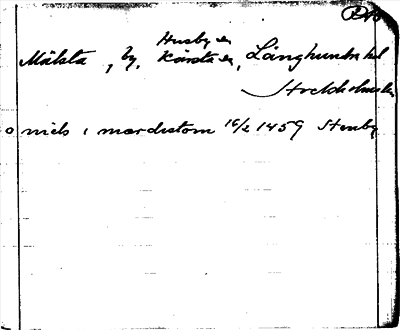 Husby sn
Mälsta, by, Kårsta sn, Långhundra hd
Stockholms län
o niels i mædistom 16/2 1459 Stenby